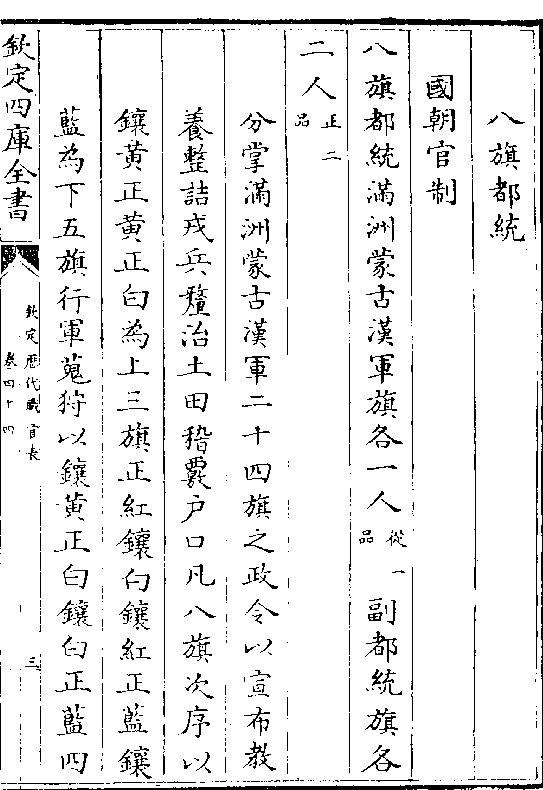 八旗都統
國朝官制
八旗都統滿洲蒙古漢軍旗各一人從一品副都統旗各
二人正二品
分掌滿洲蒙古漢軍二十四旗之政令以宣布教
養整詰戎兵釐治土田稽覈户口凡八旗次序以
鑲黄正黄正白為上三旗正紅鑲白鑲紅正藍鑲
藍為下五旗行軍蒐狩以鑲黄正白鑲白正藍四
欽定四庫全書
欽定歴代職官表
卷四十四
三